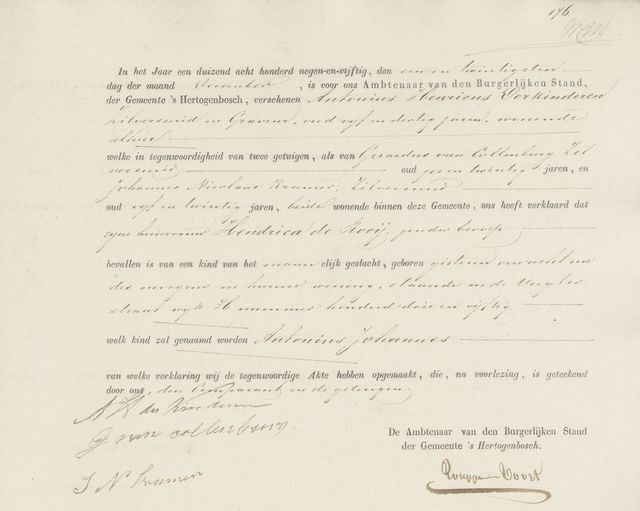 176
In het Jaar een duizend acht honderd negen-en-vijftig, den een en twintigsten
dag der maand December , is voor ons Ambtenaar van den Burgerlijken Stand,
der Gemeente 's Hertogenbosch, verschenen Antonius Henricus Derkinderen
Zilversmid en Graveur, oud vyf en dertig jaren, wonende
alhier
welke in tegenwoordigheid van twee getuigen, als van Gerardus van Collenburg Zil
versmid oud zes en twintig jaren, en
Johannes Nicolaas Kramer, Zilversmid
oud vyf en twintig jaren, beide wonende binnen deze Gemeente, ons heeft verklaard dat
zyne huisvrouw Hendrica de Rooij, zonder beroep
bevallen is van een kind van het mannelijk geslacht, geboren gisteren om acht ure
des morgens in hunne woning, staande in de Vughter
straat wyk H nummer honderd drie en vyftig
welk kind zal genaamd worden Antonius Johannes
van welke verklaring wij de tegenwoordige Akte hebben opgemaakt, die, na voorlezing, is geteekend
door ons, den Comparant en de getuigen.
A H der Kinderen
G van Collenburg
J N Kramer
De Ambtenaar van den Burgerlijken Stand
der Gemeente 's Hertogenbosch.